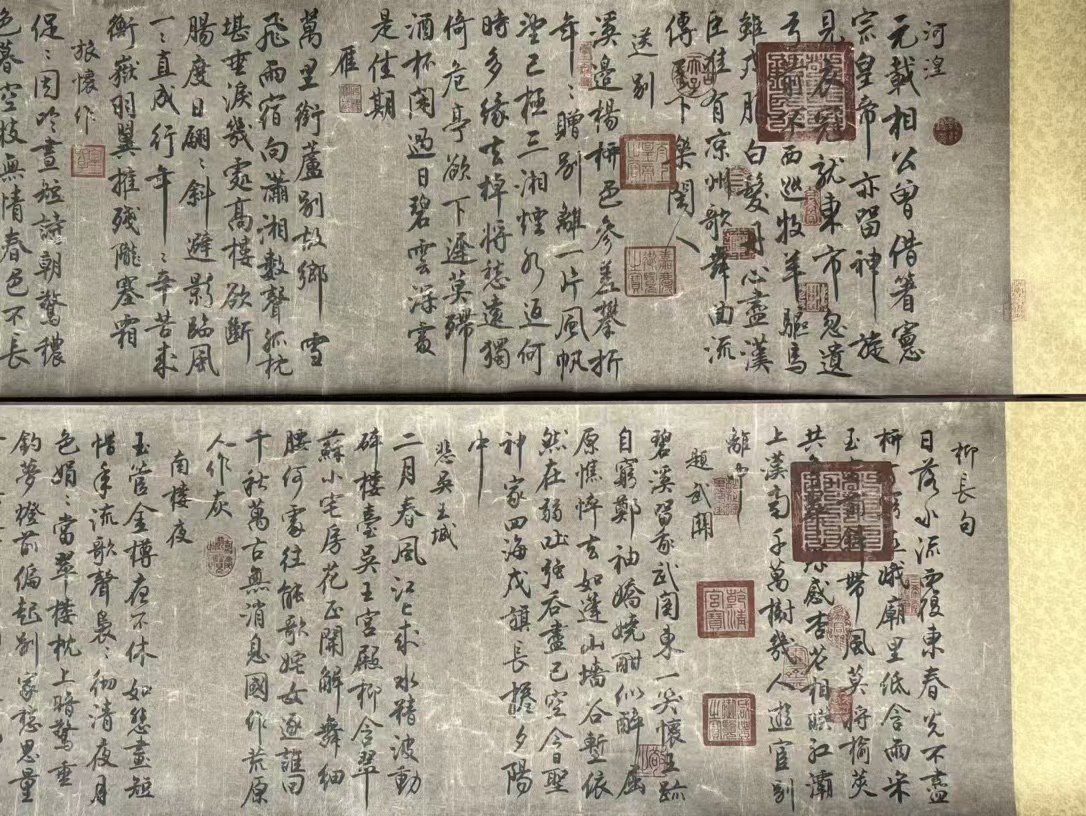 河湟
元載相公曾借箸憲
宗皇帝亦留神旋
見衣冠就東市忽遺
弓劍不西巡牧羊驅馬
雖戎服白髮丹心盡漢
臣唯有凉州歌舞曲流
傳下樂閑人
送別
溪邊楊柳色參差攀折
年々贈別離一片風帆
望已極三湘煙水返何
時多緣去棹將愁遠猶
倚危亭欲下遲莫殢
酒杯閑過日碧雲深處
是佳期
雁
萬里銜蘆別故鄉雪
飛雨宿向瀟湘數聲孤枕
堪垂淚幾處高樓欲斷
腸度日翩々斜避影臨風
一々直成行年々辛苦來
衡嶽羽翼摧殘隴塞霜
旅懷作
促々因吟晝短詩朝驚穠
色暮空枝無情春色不長
柳長句
日落水流西復東春光不盡
柳何窮巫娥廟里低含雨宋
玉帶風莫將榆莢
共深感杏花相映紅灞
上漢南千萬樹幾人遊宦別
離中
題武關
碧溪留我武關東一笑懷王跡
自窮鄭袖嬌嬈酣似醉屈
原憔悴去如蓬山墻谷塹依
然在弱吐強吞盡已空今日聖
神家四海戍旗長捲夕陽
中
悲吳王城
二月春風江上來水精波動
碎樓臺吳王宮殿柳含翠
蘇小宅房花正開解舞細
腰何處往能歌姹女逐誰回
千秋萬古無消息國作荒原
人作灰
南樓夜
玉管金樽夜不休如愁晝短
惜年流歌聲裊々徹清夜月
色娟々當翠樓枕上暗驚垂
釣夢燈前偏起別家愁思量
乾清宮寶
嘉慶御覽之寶